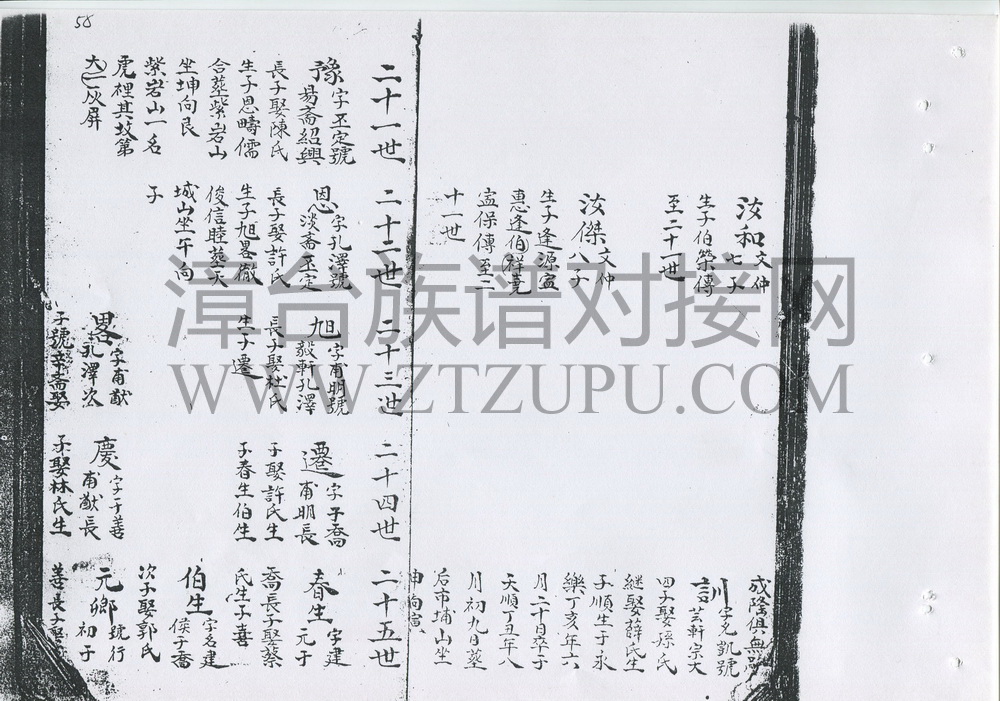 58
汝和 文仲七子
生子伯榮傳
至二十一世
汝傑 文仲八子
生子逢源宣
惠逢伯祥堯
孟保傳至二
十一世
成隆俱無嗣
訓 字允凱號芸軒宗大
四子娶孫氏
継娶薛氏生
子順生于永
樂丁亥年六
月二十日卒于
天順丁丑年八
月初九日塟
后市埔山坐
申向
二十一世
豫 字丕定號易斎紹興
長子娶陳氏
生子恩疇儒
合塟紫岩山
坐坤向艮
紫岩山一名
虎裡其坟第
大一灰屏
二十二世
恩 字孔澤號淡斎丕定
長子娶許氏
生子旭畧徹
俊信睦塟天
城山坐午向
子
二十三世
旭 字甫明號毅軒孔澤
長子娶杜氏
生子遷
畧 字甫猷孔澤次
子號斎娶
二十四世
遷 字于喬甫明長
子娶許氏生
子春生伯生
慶 字于善甫猷長
子娶林氏生
二十五世
春生 字建元于
喬長子娶蔡
氏生子養
伯生 字名建侯于喬
次子娶郭氏
元卿 號行初于
善長子娶
漳台族谱对接网
WWW.ZTZUPU.COM